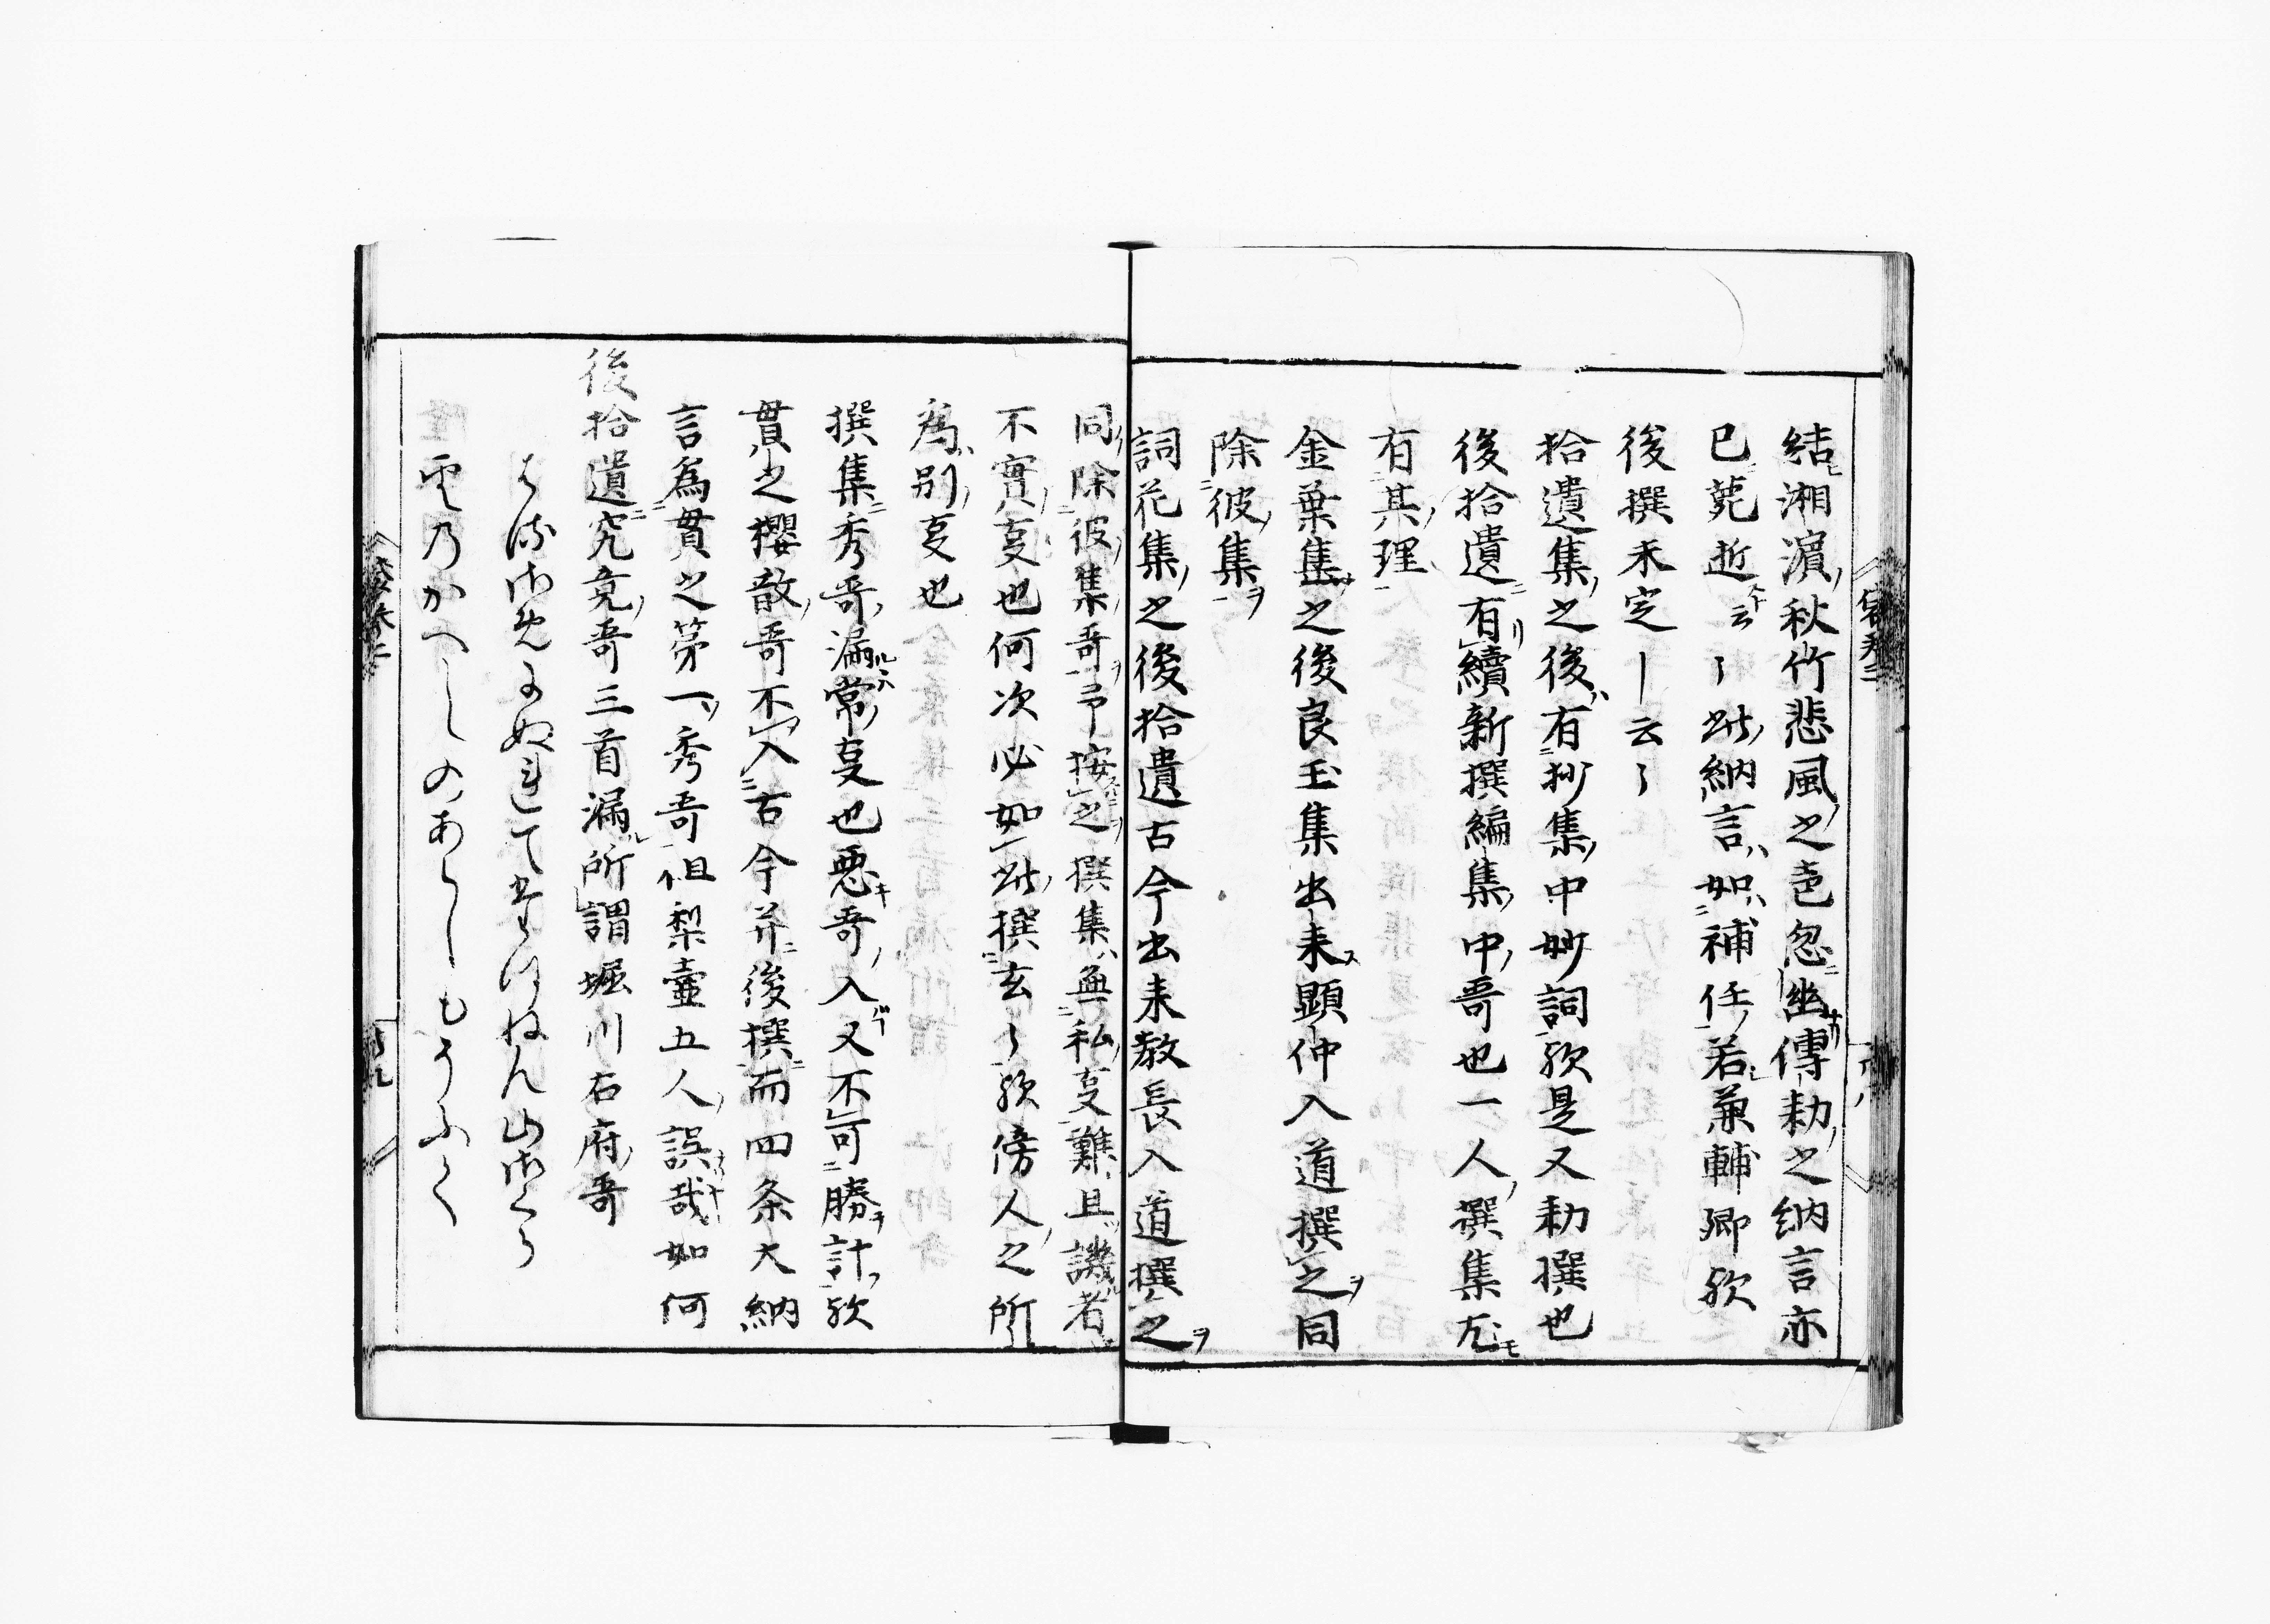 結湘濵秋竹悲風之色忽幽傳勅之納言亦
已薨逝云〻此納言如補任若兼輔卿欤
後撰未定ー云〻
拾遺集之後有抄集中妙詞欤是又勅撰也
後拾遺有續新撰編集中哥也一人撰集尤
有其理
金葉集之後良玉集出来顕仲入道撰之同
除彼集
詞花集之後拾遺古今出来教長入道撰之
同除彼集哥予按之撰集無私㕝難且譏者
不實㕝也何次必如此撰玄〻欤傍人之所
為別㕝也
撰集秀哥漏常㕝也悪哥入又不可勝計欤
貫之櫻散哥不入古今并後撰而四条大納
言為貫之第一秀哥但梨壷五人誤哉如何
後拾遺究竟哥三首漏所謂堀川右府哥
ぬれて
雲のかへしのあらしもそふく